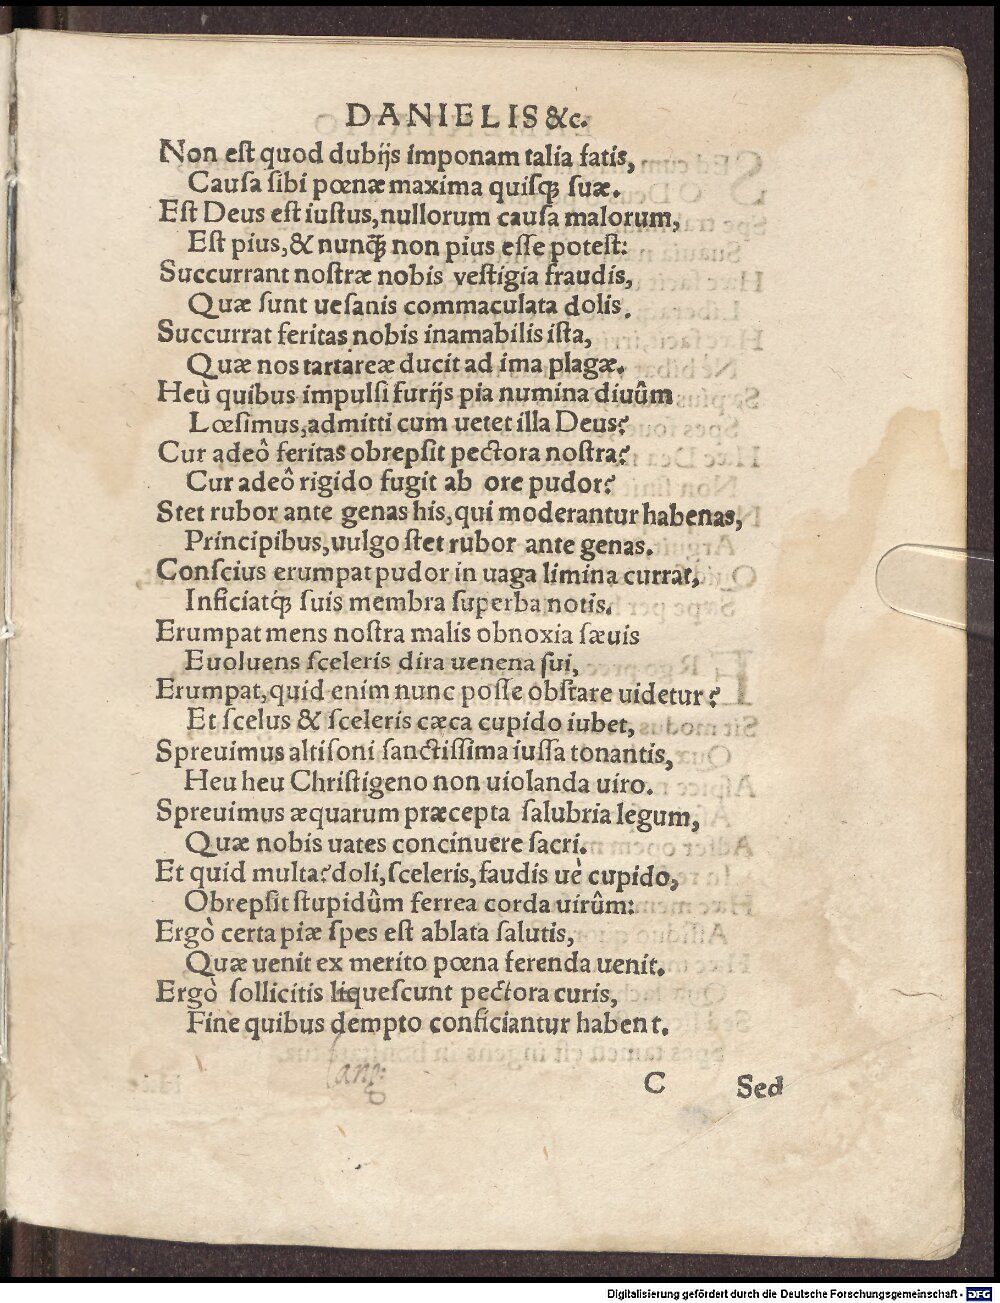 DANIELIS &c.
Non est quod dubijs imponam talia fatis,
Causa sibi pœnæ maxima quisq́ꝫ suæ.
Est Deus est iustus, nullorum causa malorum,
Est pius, & nunq̄ꝫ non pius esse potest:
Succurrant nostræ nobis vestigia fraudis,
Quæ sunt uesanis commaculata dolis.
Succurrat feritas nobis inamabilis ista,
Quæ nos tartareæ ducit ad ima plagæ.
Heù quibus impulsi furijs pia numina diuûm
Lœsimus, admitti cum uetet illa Deus?
Cur adeô feritas obrepsit pectora nostra?
Cur adeô rigido fugit ab ore pudor?
Stet rubor ante genas his, qui moderantur habenas,
Principibus, uulgo stet rubor ante genas.
Conscius erumpat pudor in uaga limina currat,
Inficiatq́ꝫ suis membra superba notis.
Erumpat mens nostra malis obnoxia sæuis
Euoluens sceleris dira uenena sui,
Erumpat, quid enim nunc posse obstare uidetur?
Et scelus & sceleris cæca cupido iubet,
Spreuimus altisoni sanctissima iussa tonantis,
Heu heu Christigeno non uiolanda uiro.
Spreuimus æquarum præcepta salubria legum,
Quæ nobis uates concinuere sacri.
Et quid multa? doli, sceleris, faudis uè cupido,
Obrepsit stupidûm ferrea corda uirûm:
Ergò certa piæ spes est ablata salutis,
Quæ uenit ex merito pœna ferenda uenit.
Ergò sollicitis liquescunt pectora curis,
Fine quibus dempto conficiantur habent.
C Sed
Digitalisierung gefördert durch die Deutsche Forschungsgemeinschaft - DFG